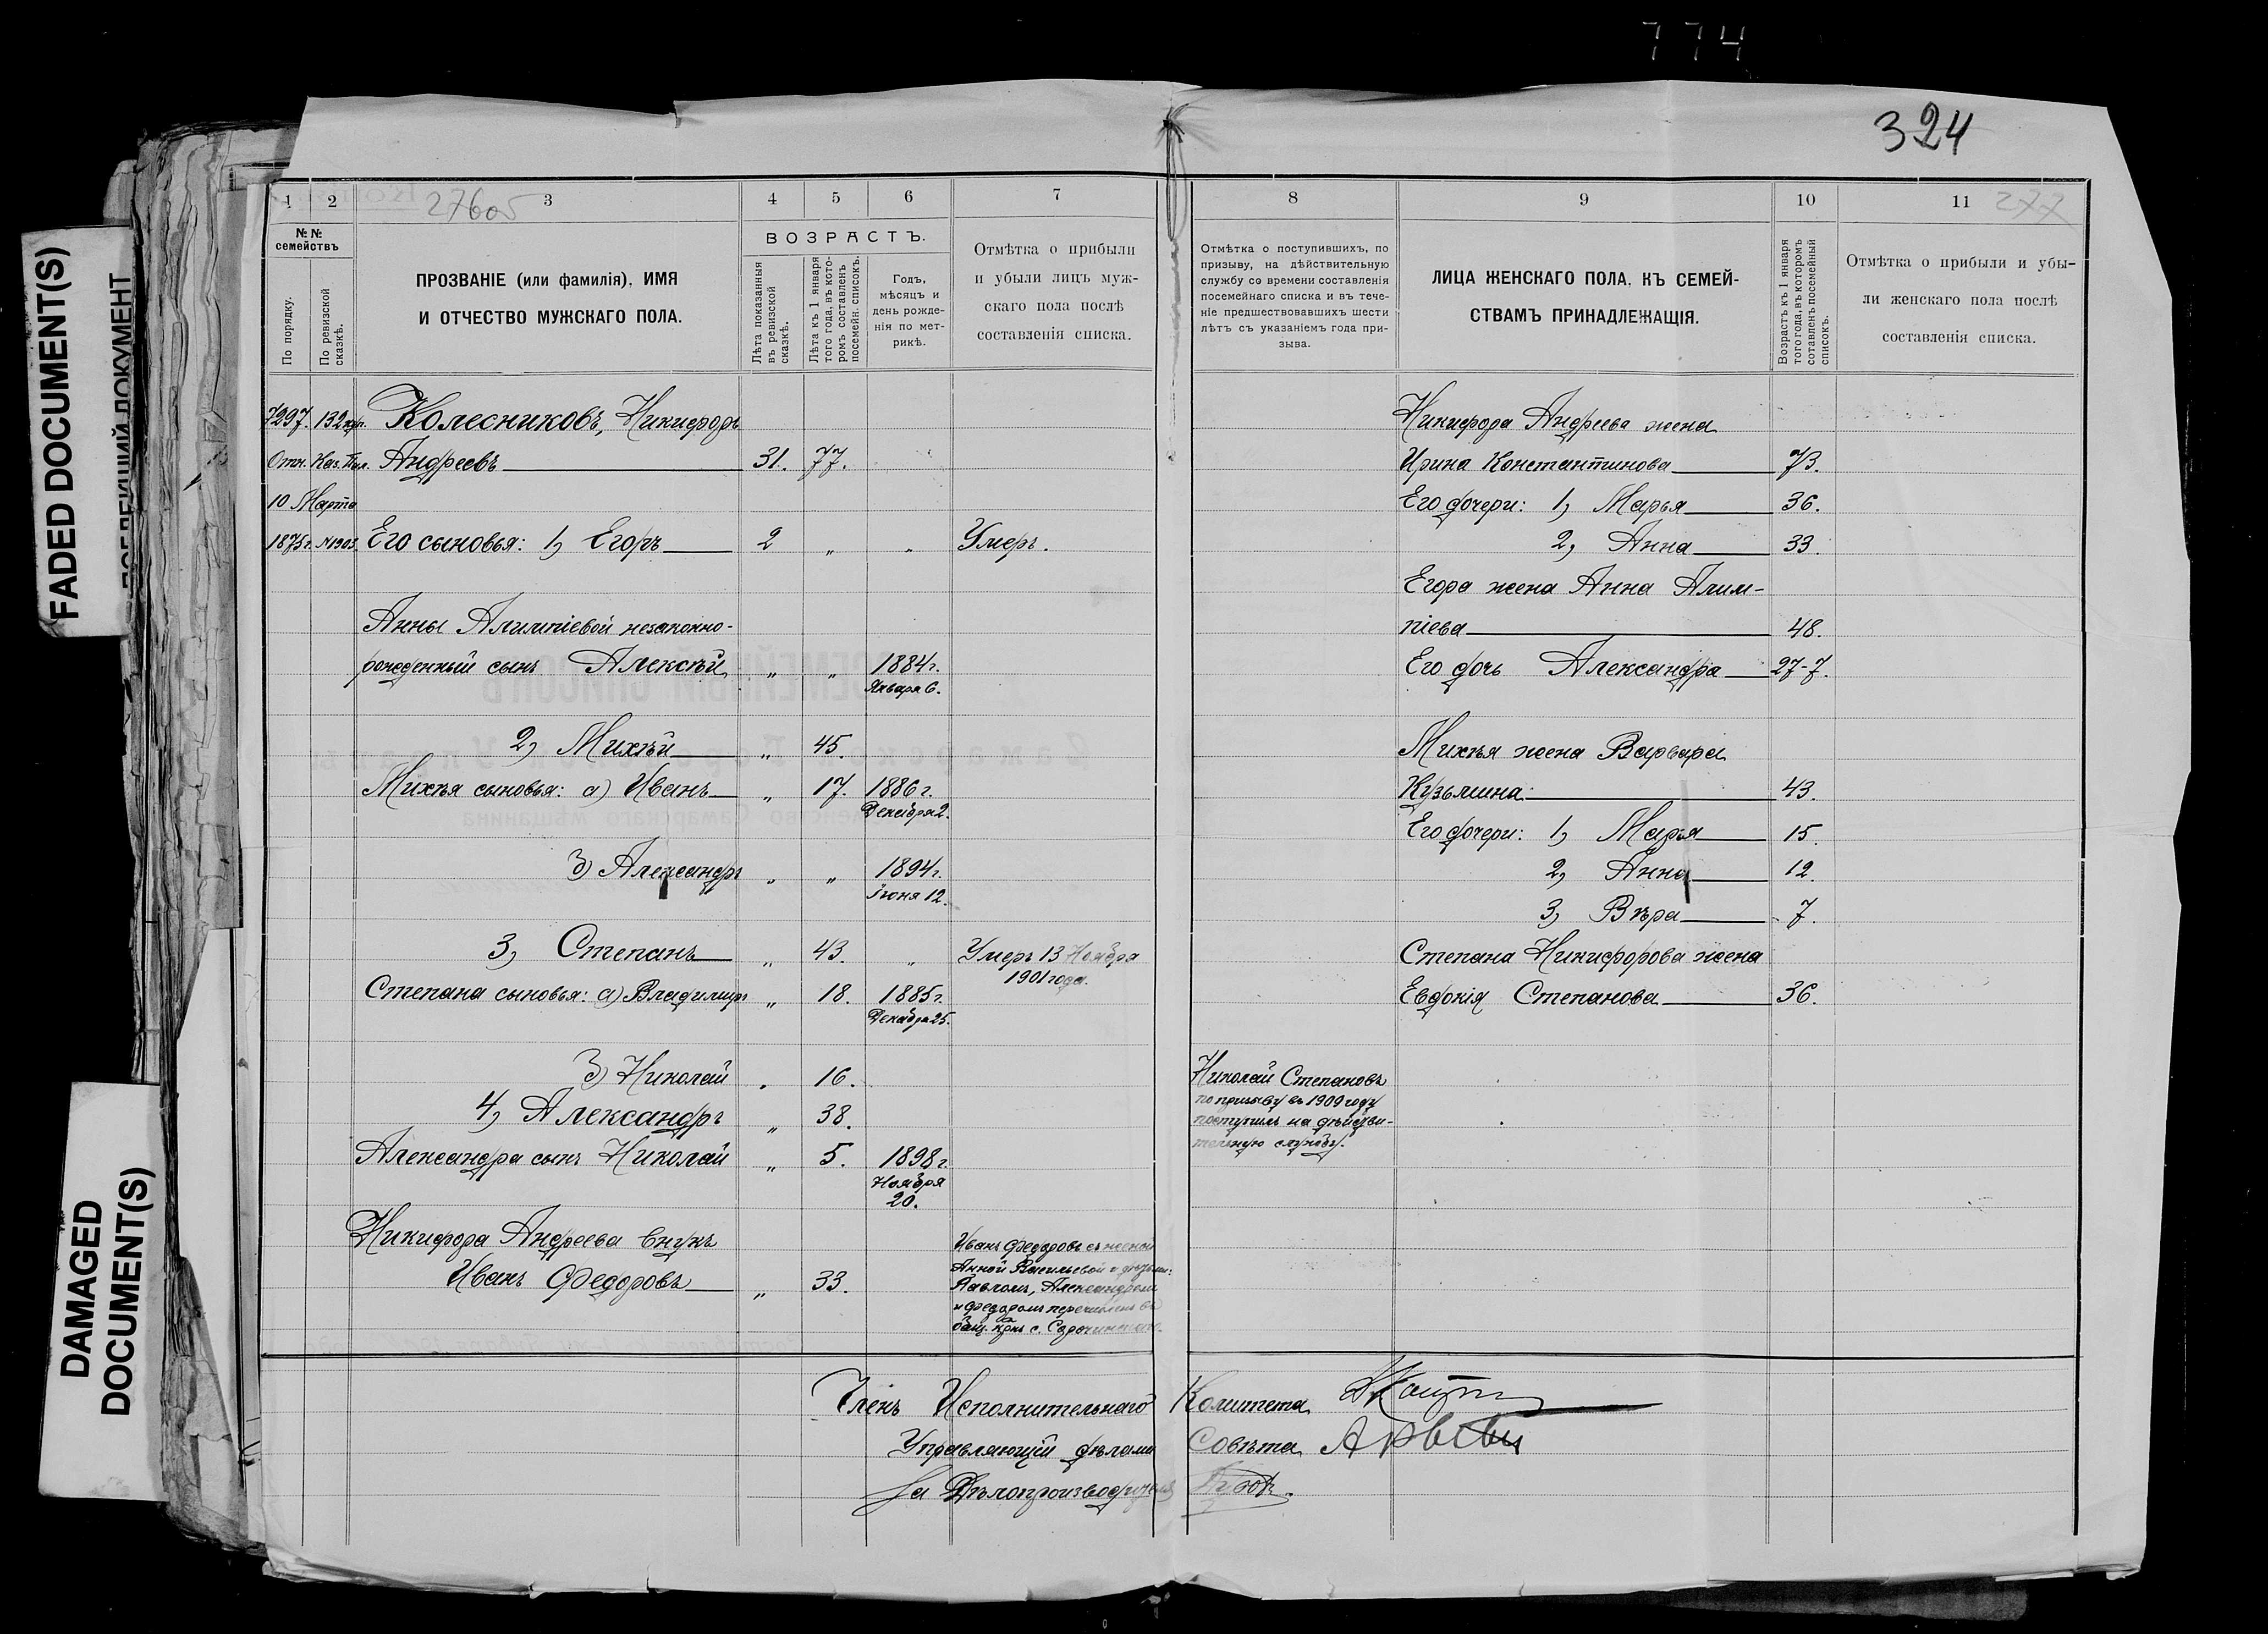 774
324
FADED DOCUMENT(S)
DAMAGED
DOCUMENT(S)
1 2 3 4 5 6 7 8 9 10 11
27605
277
№ №
семействъ
По порядку.
По ревизской
сказкѣ.
ПРОЗВАНІЕ (или фамилія), ИМЯ
И ОТЧЕСТВО МУЖСКАГО ПОЛА.
ВОЗРАСТЪ.
Лѣта показанныя
въ ревизской
сказкѣ.
Лѣта къ 1 января
того года, въ кото-
ромъ составленъ
посемейн. списокъ.
Годъ,
мѣсяцъ и
день рожде-
нія по мет-
рикѣ.
Отмѣтка о прибыли
и убыли лицъ муж-
скаго пола послѣ
составленія списка.
Отмѣтка о поступившихъ, по
призыву, на дѣйствительную
службу со времени составленія
посемейнаго списка и въ тече-
ніе предшествовавшихъ шести
лѣтъ съ указаніемъ года при-
зыва.
ЛИЦА ЖЕНСКАГО ПОЛА, КЪ СЕМЕЙ-
СТВАМЪ ПРИНАДЛЕЖАЩІЯ.
Возрастъ къ 1 января
того года, въ которомъ
составленъ посемейный
списокъ.
Отмѣтка о прибыли и убы-
ли женскаго пола послѣ
составленія списка.
7297. 132 Колесниковъ, Никифоръ
Отн. Каз. Пал. Андреевъ 31. 77.
10 Марта
1875 г. №1903. Его сыновья: 1) Егоръ 2 „ „ Умеръ.
Анны Алимпіевой незаконно-
рожденный сынъ Алексѣй „ „ 1884 г.
Января 6.
2) Михѣй „ 45.
Михѣя сыновья: а) Иванъ „ 17. 1886 г.
Декабря 2.
3) Александръ „ „ 1894 г.
Іюня 12.
3) Степанъ „ 43. „ Умеръ 13 Ноября
1901 года.
Степана сыновья: а) Владиміръ „ 18. 1885 г.
Декабря 25.
3) Николай „ 16.
4) Александръ „ 38.
Александра сынъ Николай „ 5. 1898 г.
Ноября
20.
Никифора Андреева внукъ
Иванъ Федоровъ „ 33.
Иванъ Федоровъ съ женой
Анной Васильевой и дѣтьми:
Павломъ, Александромъ
и Федоромъ перечисленъ въ
с.
Никифора Андреева жена
Ирина Константинова 73.
Его дочери: 1) Марья 36.
2) Анна 33.
Егора жена Анна Алим-
піева 48.
Его дочь Александра 27-7.
Михѣя жена Варвара
Кузьмина 43.
Его дочери: 1) Марья 15.
2) Анна 12.
3) Вѣра 7.
Степана Никифорова жена
Евдокія Степанова 36.
Николай Степановъ
по призыву въ 1909 году
поступилъ на дѣйстви-
тельную службу.
Членъ Исполнительнаго Комитета
Управляющій дѣлами Совѣта
За Дѣлопроизводителя